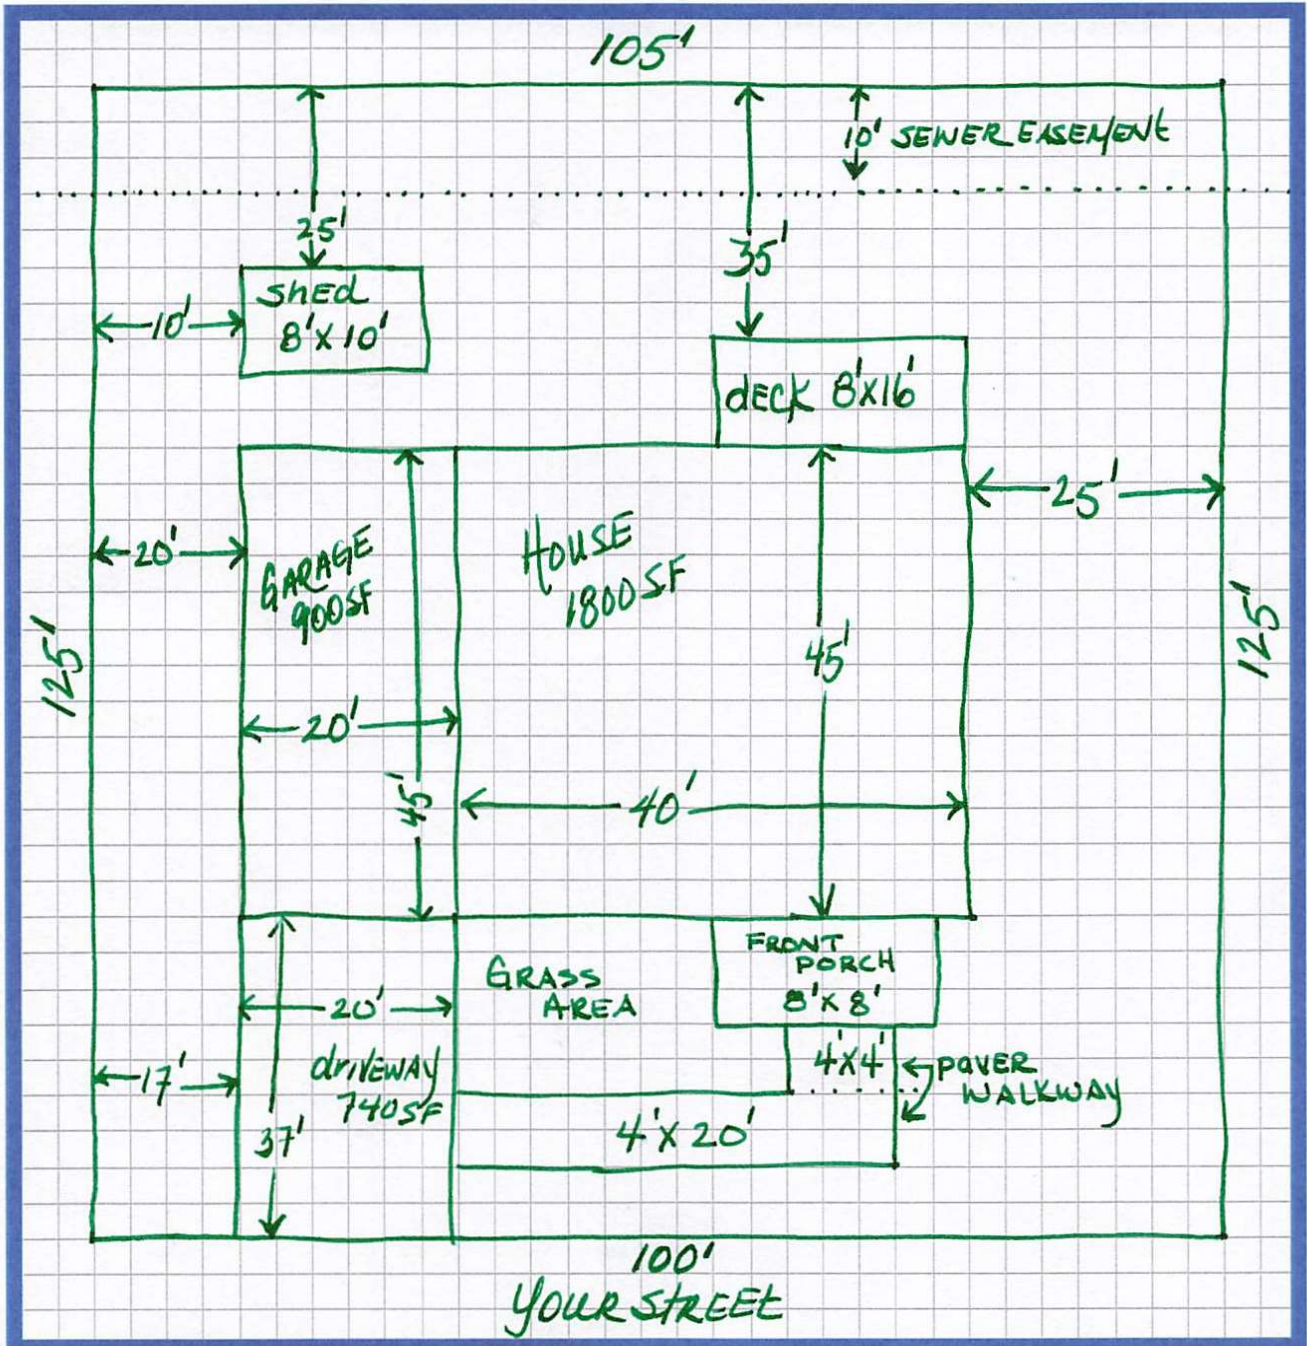 105'
10' SEWER EASEMENT
25'
35'
shEd
8'X10'
10'
dECK 8'X16'
25'
20'
GARAGE
900SF
HOUSE
1800SF
125'
125'
45'
20'
45'
40'
FRONT
PORCH
8'X8'
GRASS
AREA
20'
4'X4'
PAVER
WALKWAY
17'
driVEWAY
740SF
37'
4'X20'
100'
YOUR STREEt